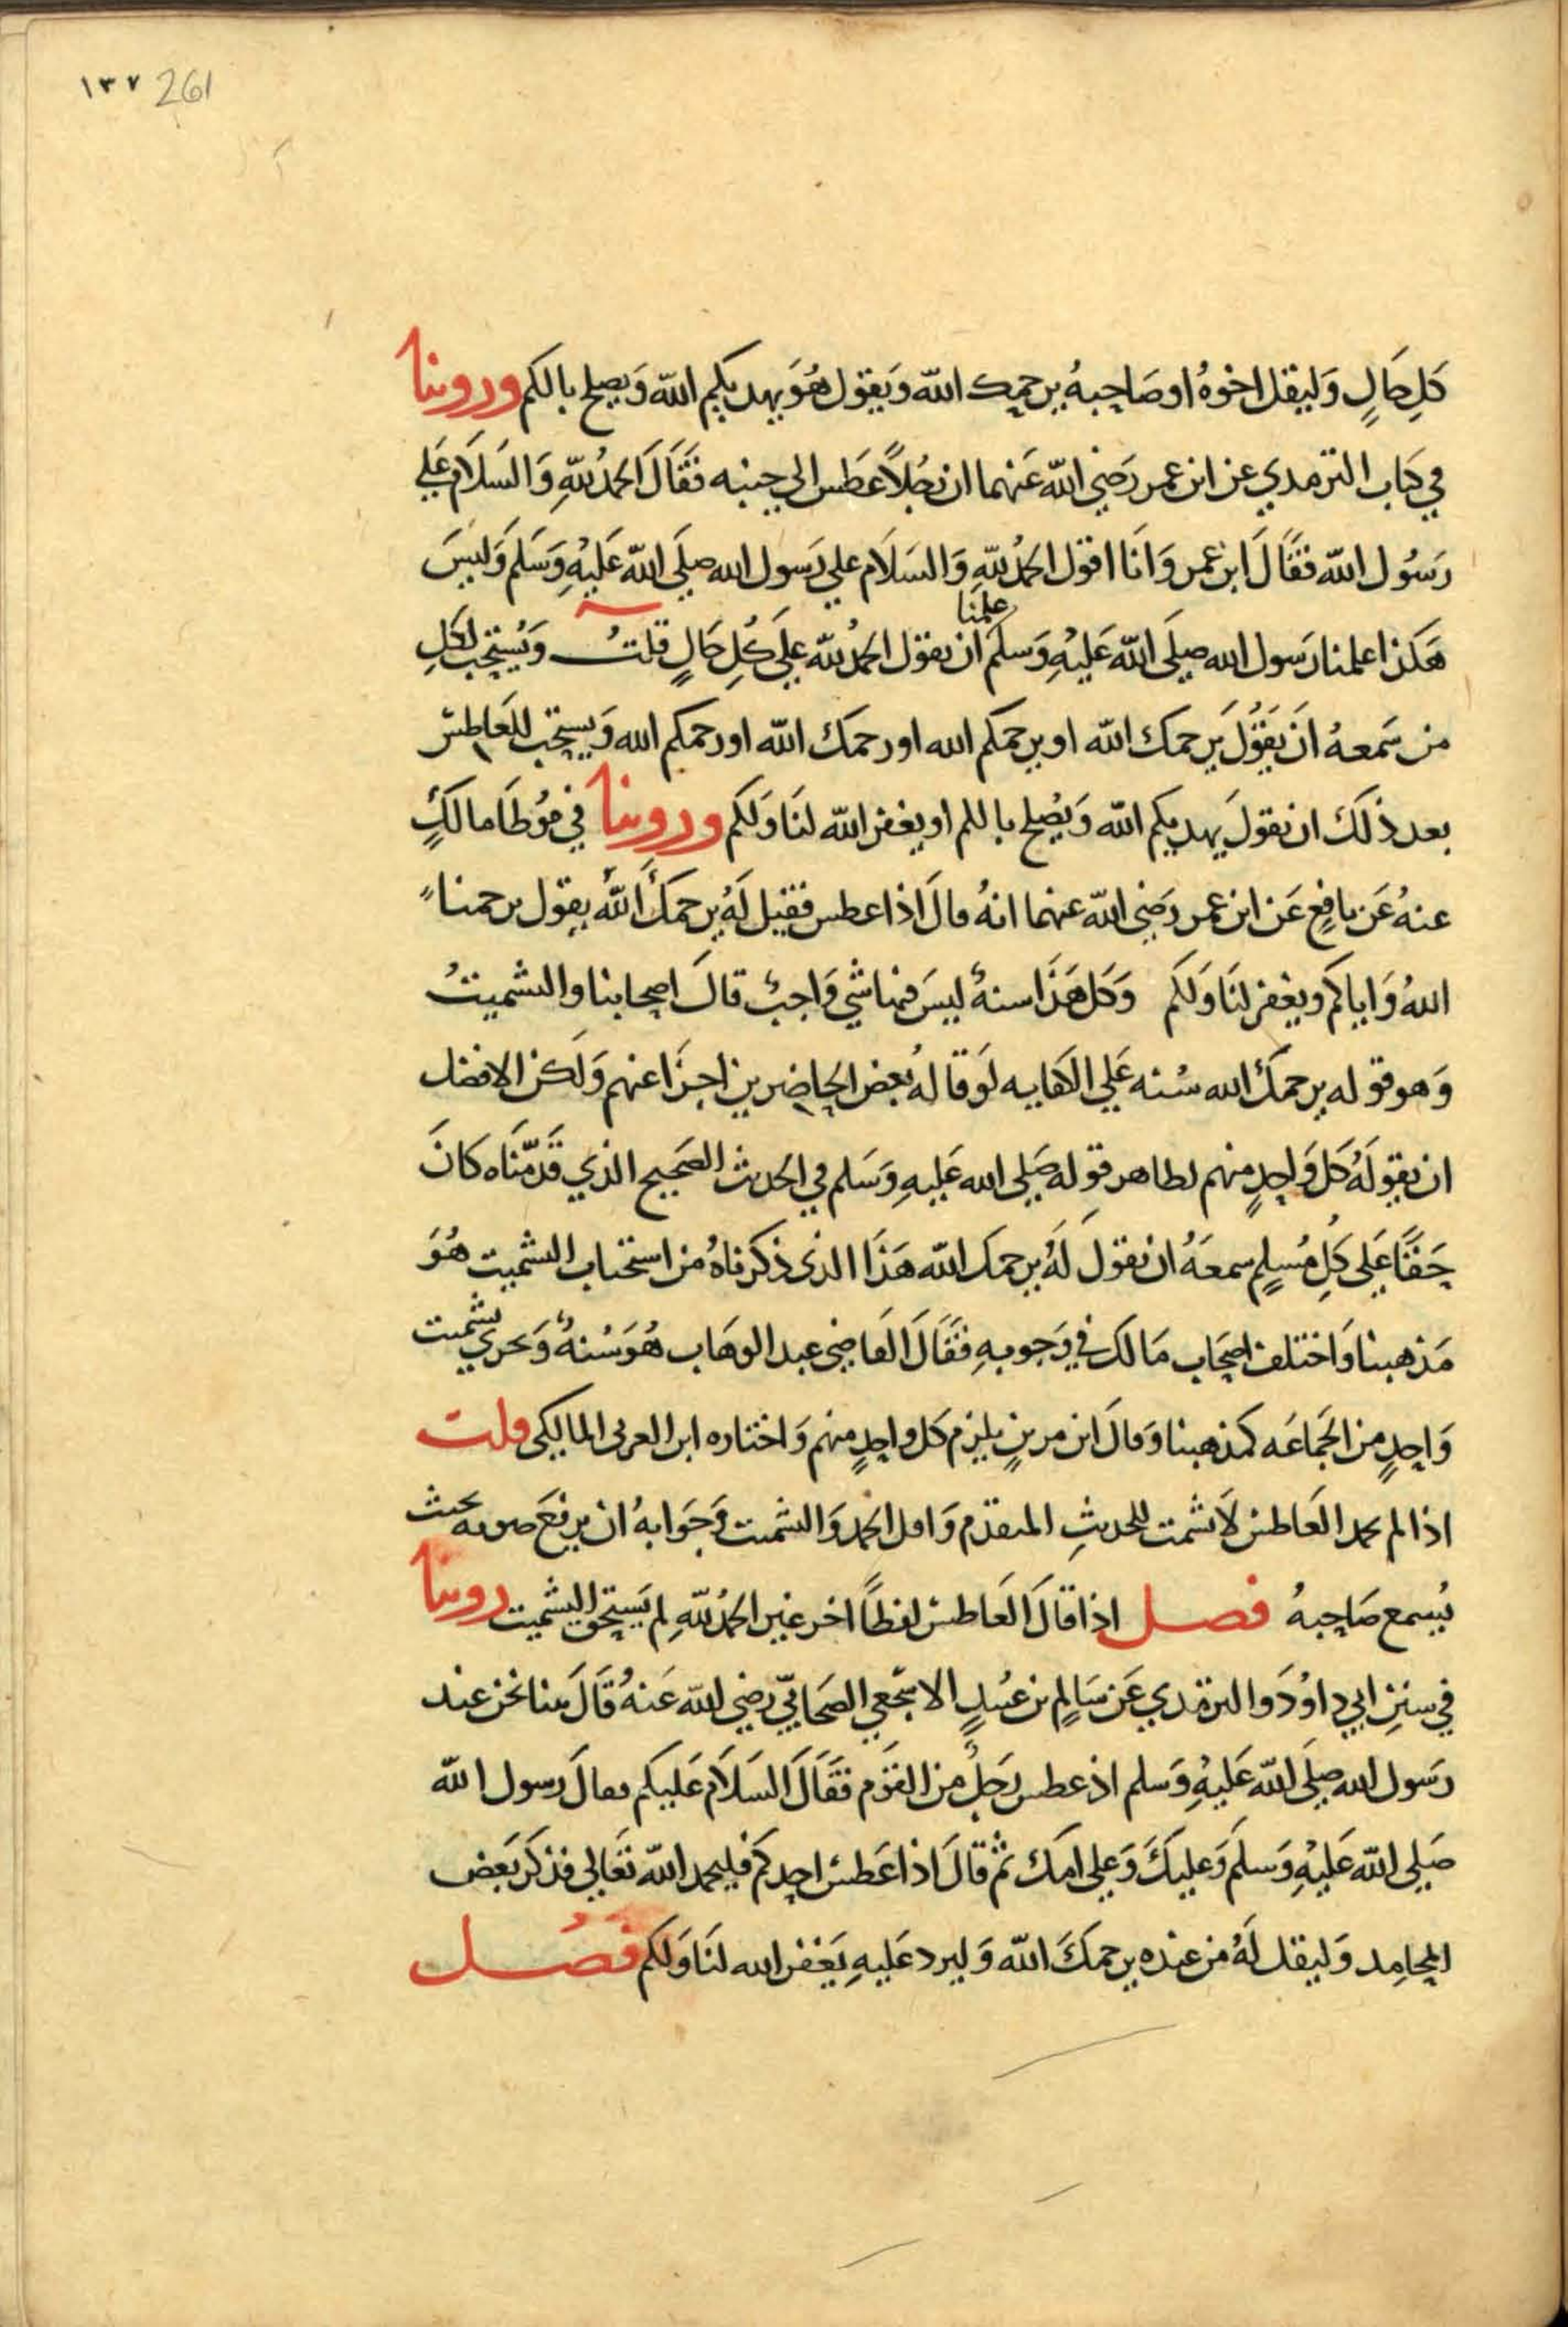 ١٣٧ 261
كل حَالٍ وَليقل اخوهُ او صَاحِبهُ يرحمك الله وَيَقول هُوَ يهديكم الله وَيصلح بالكم وروينا
في كتاب الترمدي عن ابن عمر رَضي الله عَنهما ان رجُلاً عَطس الي جنبه فقَالَ الحمدُ للّهِ وَالسَلَام عَلي
رَسُول الله فقَالَ ابن عمر وَانَا اقول الحمدُ للّهِ وَالسَلَام علي رَسول الله صلَى الله عَليْهِ وَسَلم وَليسَ
هَكذا علمنا رَسول الله صلَى الله عَليْهِ وَسلم علمنا ان يقول الحمدُ للّه عَلَى كُلِ حَالٍ قلتُ وَيُستحب لكلِ
من سَمعهُ انَ يَقُولَ يَرحمك الله او يرحمكم الله او رحمك الله او رحمكم الله وَيستحب للعَاطس
بعد ذلكَ ان يقولَ يهديكم الله وَيُصلح باللم او يغفر الله لنَا وَلكم وروينا في مُوطَا مالكٍ
عنهُ عَن نافِعٍ عَن ابن عمر رَضي الله عنهما انهُ قالَ اذا عطس فقيل لَهُ يرحمكَ اللّهُ يقول يرحمنا
اللهُ وَاياكم ويغفر لنَا وَلكم وَكل هَذَا سنةٌ ليسَ فمنا شي وَاجبٌ قالَ اصحابنا والتشميتُ
وَهو قوله يرحمكَ الله سُنه عَلي الكفايه لَو قالهُ بعض الحاضرين اجزَا عنهم وَلكن الافضل
ان يقولهُ كل وَاحِدٍ منهم لظاهر قوله صَلى الله عَليهِ وَسَلم في الحَديث الصَحيح الذي قَدّمنَاه كانَ
حَقًا عَلى كلِ مُسلِمٍ سمعَهُ ان يقولَ لَهُ يرحمك الله هَذَا الذى ذكرناهُ من استحباب التشميت هُوَ
مَذهبنا وَاختلف اصحَاب مَالك في وَجوبهِ فقَالَ القَاضى عبد الوهَاب هُوَ سُنهٌ وَيجرى تشميت
وَاحِدٍ من الجَمَاعَه كمذهبنا وَقالَ ابن مرينٍ يلزم كل واحِدٍ منهم وَاختاره ابن العربى المالكى قلت
اذا لم يحمد العَاطس لَا يشمت للحَديثِ المتقدم وَاقل الحمد وَالتشميت وَجَوابهُ ان يرفعَ صوته بحيث
يُسمع صَاحِبهُ فصل اذا قالَ العَاطس لفظاً اخر غير الحمدُ للّهِ لم يَستحق التشميت روينا
في سننِ ابي داوُد وَالترمدي عَن سَالِمِ بن عُبيدٍ الاشجعي الصَحَابيّ رضي الله عَنهُ قَالَ بينا نحن عند
رَسول الله صلَى الله عَليهِ وَسلم اذ عطس رَجلٌ من القَوم فقَالَ السَلَام عَليكم فقالَ رَسول الله
صَلى الله عَليْهِ وَسلَم وَعليكَ وَعلى امكَ ثم قالَ اذا عَطسَ احدكم فليحمد الله تعَالى فذكر بَعض
المحامِد وَليقل لَهُ من عنده يرحمكَ الله وَليرد عَليهِ يَغفر الله لنَا وَلكم فصْل